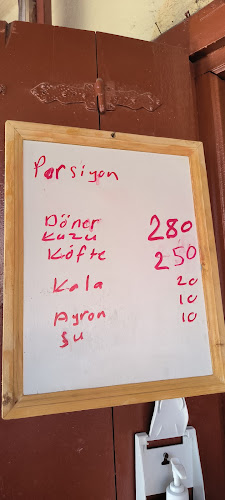 Porsiyon
Döner 280
Kuzu
Köfte 250
Kala 20
Ayron 10
Şu 10